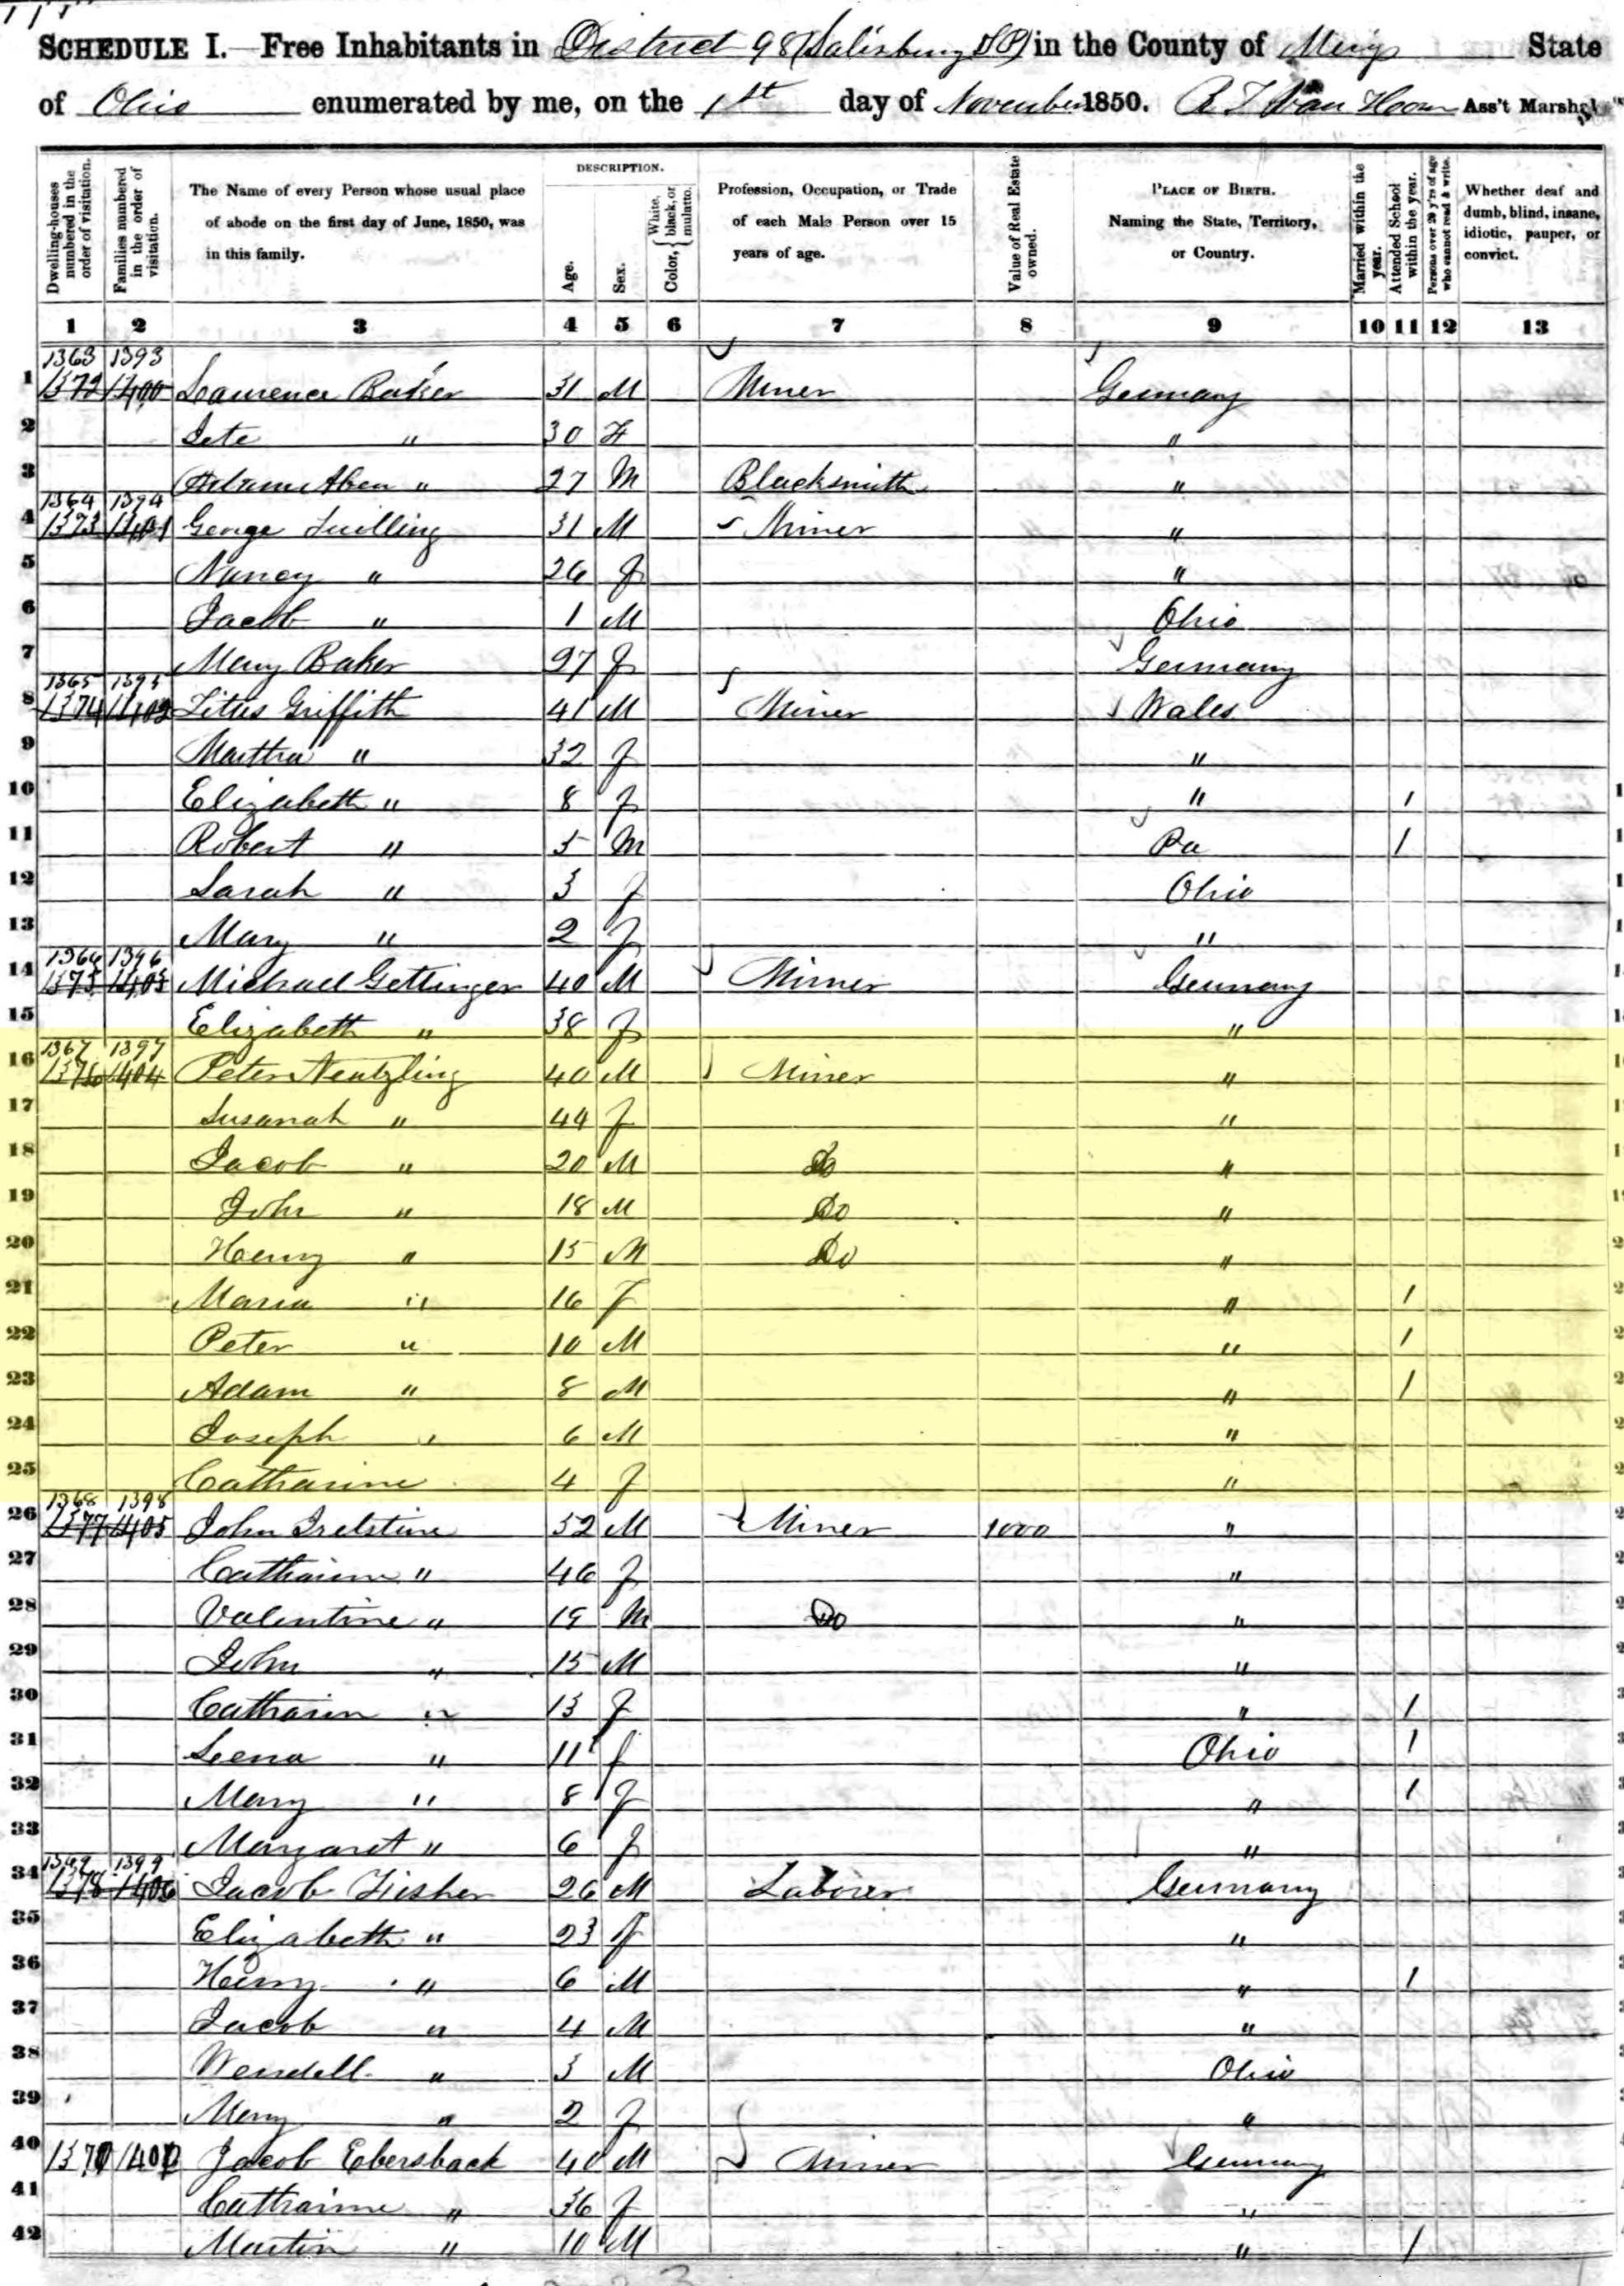 SCHEDULE I.—Free Inhabitants in District 98 (Salisbury TP) in the County of Meigs State
of Ohio enumerated by me, on the 1st day of November 1850. Ass't Marshal
Dwelling-houses numbered in the order of visitation.
Families numbered in the order of visitation.
The Name of every Person whose usual place of abode on the first day of June, 1850, was in this family.
DESCRIPTION.
Age.
Sex.
Color, { White, black, or mulatto.
Profession, Occupation, or Trade of each Male Person over 15 years of age.
Value of Real Estate owned.
PLACE OF BIRTH. Naming the State, Territory, or Country.
Married within the year.
Attended School within the year.
Persons over 20 y'rs of age who cannot read & write.
Whether deaf and dumb, blind, insane, idiotic, pauper, or convict.
1 2 3 4 5 6 7 8 9 10 11 12 13
1363 1393
1 1372 1400 Laurence Baker 31 M Miner Germany
2 " 30 F "
3 " 27 M Blacksmith "
1364 1394
4 1373 1401 George 31 M Miner "
5 Nancy " 26 f "
6 Jacob " 1 M Ohio
7 Mary Baker 27 f Germany
1365 1395
8 1374 1402 Titus Griffith 41 M Miner Wales
9 Martha " 32 f "
10 Elizabeth " 8 f " 1
11 Robert " 5 M Pa 1
12 Sarah " 3 f Ohio
13 Mary " 2 f "
1366 1396
14 1375 1403 Michael Gettinger 40 M Miner Germany
15 Elizabeth " 38 f "
1367 1397
16 1376 1404 Peter Neutzling 40 M Miner "
17 Susanah " 44 f "
18 Jacob " 20 M Do "
19 John " 18 M Do "
20 Henry " 15 M Do "
21 Maria " 16 f " 1
22 Peter " 10 M " 1
23 Adam " 8 M " 1
24 Joseph " 6 M "
25 Catharine 4 f "
1368 1398
26 1377 1405 John 52 M Miner 1000 "
27 Catharine " 46 f "
28 Valentine " 19 M Do "
29 John " 15 M "
30 Catharin " 13 f " 1
31 Leena " 11 f Ohio 1
32 Mary " 8 f " 1
33 Margaret " 6 f "
1369 1399
34 1378 1406 Jacob Fisher 26 M Laborer Germany
35 Elizabeth " 23 f "
36 Henry " 6 M " 1
37 Jacob " 4 M "
38 Wendell " 3 M Ohio
39 Mary " 2 f "
40 Jacob Ebersback 40 M Miner Germany
41 Catharine " 36 f "
42 Martin " 10 M " 1